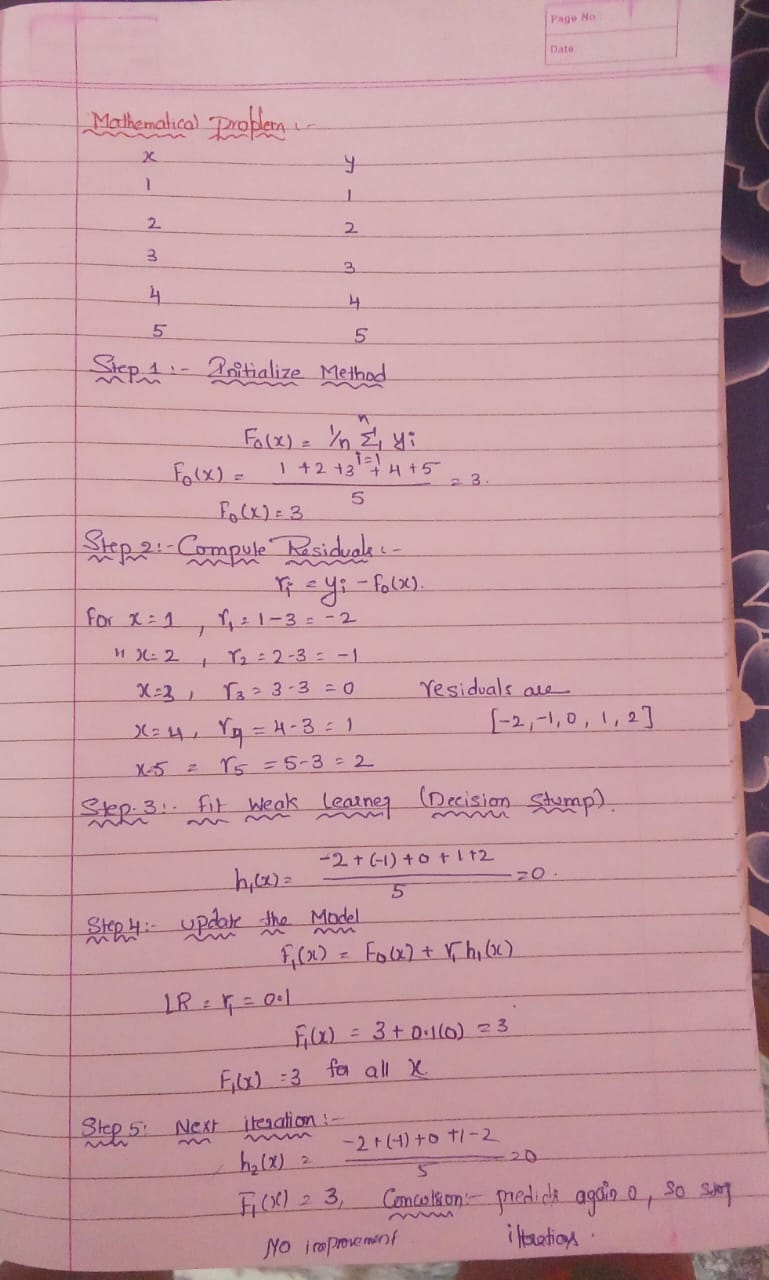 Page No
Date
Mathematical Problem :-
x y
1 1
2 2
3 3
4 4
5 5
Step 1 :- Initialize Method
F₀(x) = 1/n Σⁿᵢ₌₁ yi
F₀(x) = (1+2+3+4+5)/5 = 3.
F₀(x) = 3
Step 2 :- Compute Residuals :-
ri = yi - F₀(x).
For x = 1 , r₁ = 1-3 = -2
" x = 2 , r₂ = 2-3 = -1
x = 3 , r₃ = 3-3 = 0 residuals are
x = 4 , r₄ = 4-3 = 1 [-2, -1, 0, 1, 2]
x-5 = r₅ = 5-3 = 2
Step-3 :- Fit Weak learner (Decision Stump).
h₁(x) = (-2+(-1)+0+1+2)/5 = 0.
Step 4 :- update the Model
F₁(x) = F₀(x) + r₁ h₁(x)
LR = r₁ = 0.1
F₁(x) = 3 + 0.1(0) = 3
F₁(x) = 3 for all x
Step 5: Next iteration :-
h₂(x) = (-2+(-1)+0+1-2)/5 = 0
F₁(x) = 3, Conculsion :- predicts again 0, so stop
No improvement itterations.